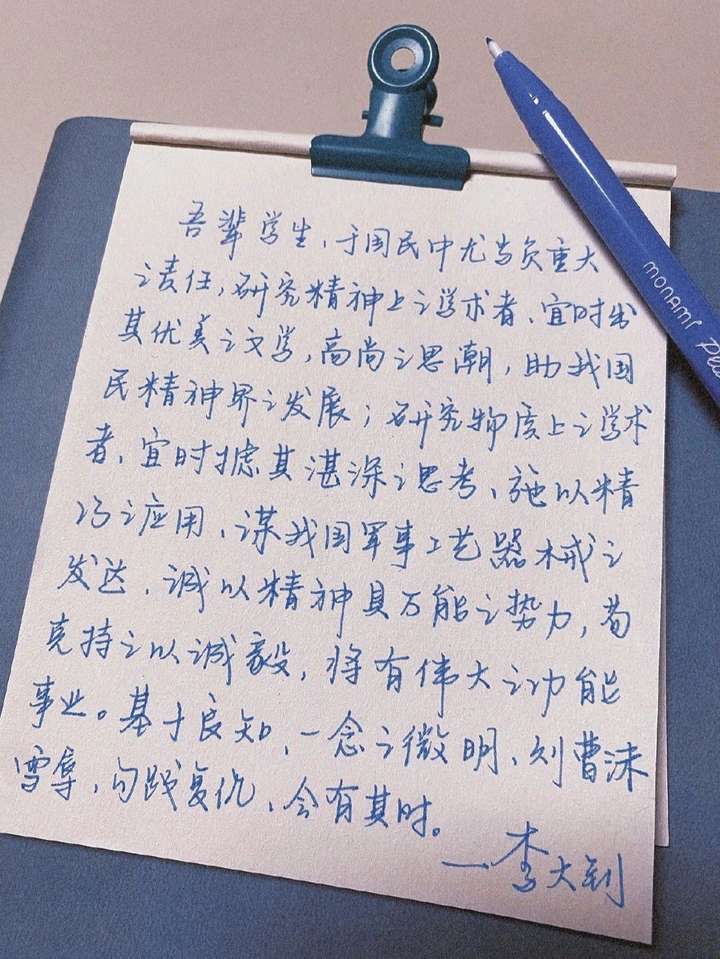 吾辈学生，于国民中尤当负重大
之责任，研究精神上之学术者，宜时出
其优美之文学，高尚之思潮，助我国
民精神界之发展；研究物质上之学术
者，宜时摅其湛深之思考，施以精
巧之应用，谋我国军事工艺器械之
发达，诚以精神具万能之势力，苟
克持之以诚毅，将有伟大之功能
事业。基于良知，一念之微明，则曹沫
雪辱，勾践复仇，会有其时。
——李大钊
monami Plu